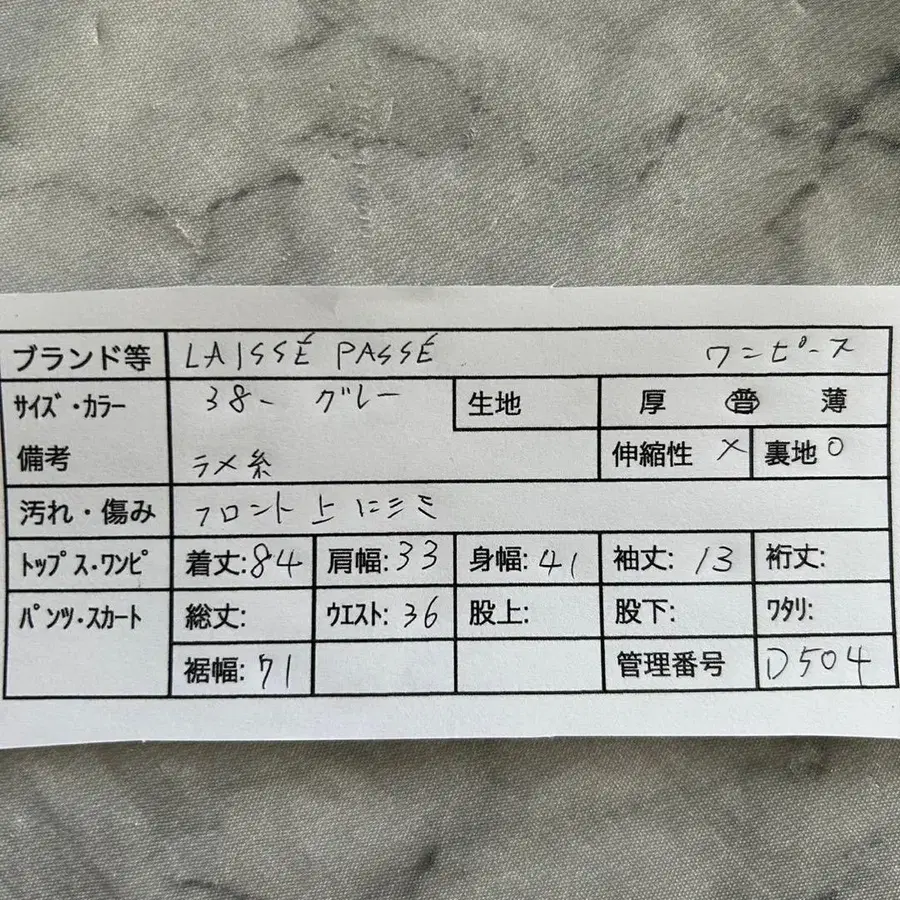 ブランド等 LAISSÉ PASSÉ ワンピース
サイズ・カラー 38- グレー 生地 厚 普 薄
備考 ラメ糸 伸縮性 × 裏地 ○
汚れ・傷み フロント上にシミ
トップス・ワンピ 着丈:84 肩幅:33 身幅:41 袖丈:13 裄丈:
パンツ・スカート 総丈: ウエスト:36 股上: 股下: ワタリ:
裾幅:71 管理番号 D504